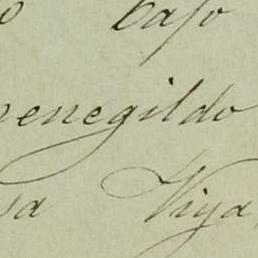 o bajo
menegildo
sa Viya